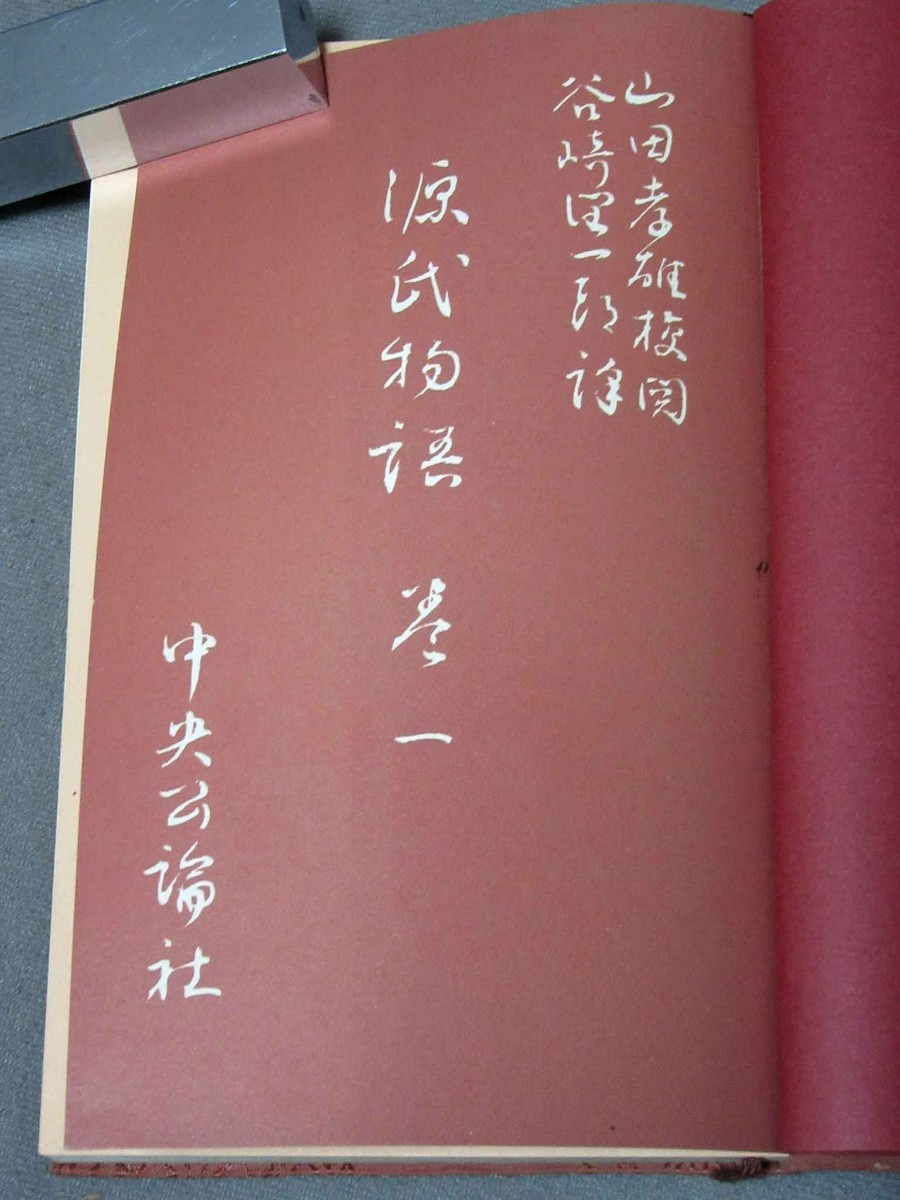 山田孝雄校閲
谷崎潤一郎譯
源氏物語 卷一
中央公論社